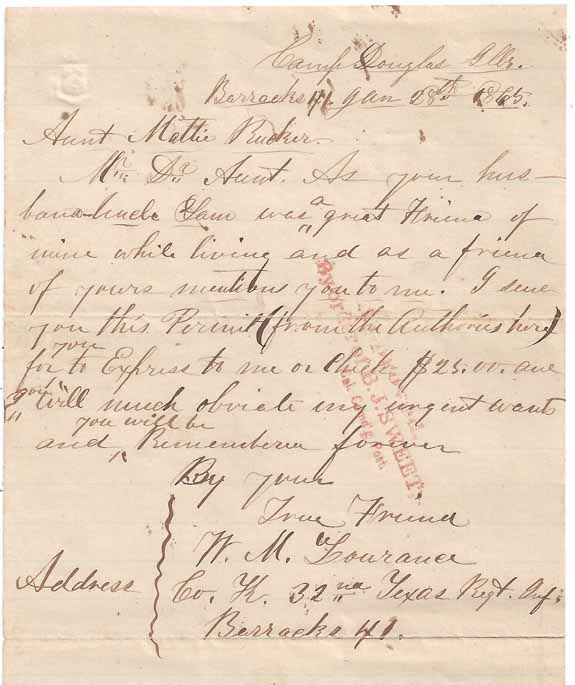 Camp Douglas Ills.
Barracks 41 Jan 28th 1865.
Aunt Mattie Rucker.
My Dr Aunt. As your hus-
band Uncle Sam was a great Friend of
mine while living and as a friend
of yours mentions you to me. I send
you this Permit (from the Authories here)
for you to Express to me or check $25.00. and
you will much obviate my urgent wants
and you will be Remembered forever
By your
True Friend
W. M. Lourance
Address Co. K. 32nd Texas Regt. Inf.
Barracks 41.
By order of B. J. SWEET,
Col. Comd'g Post